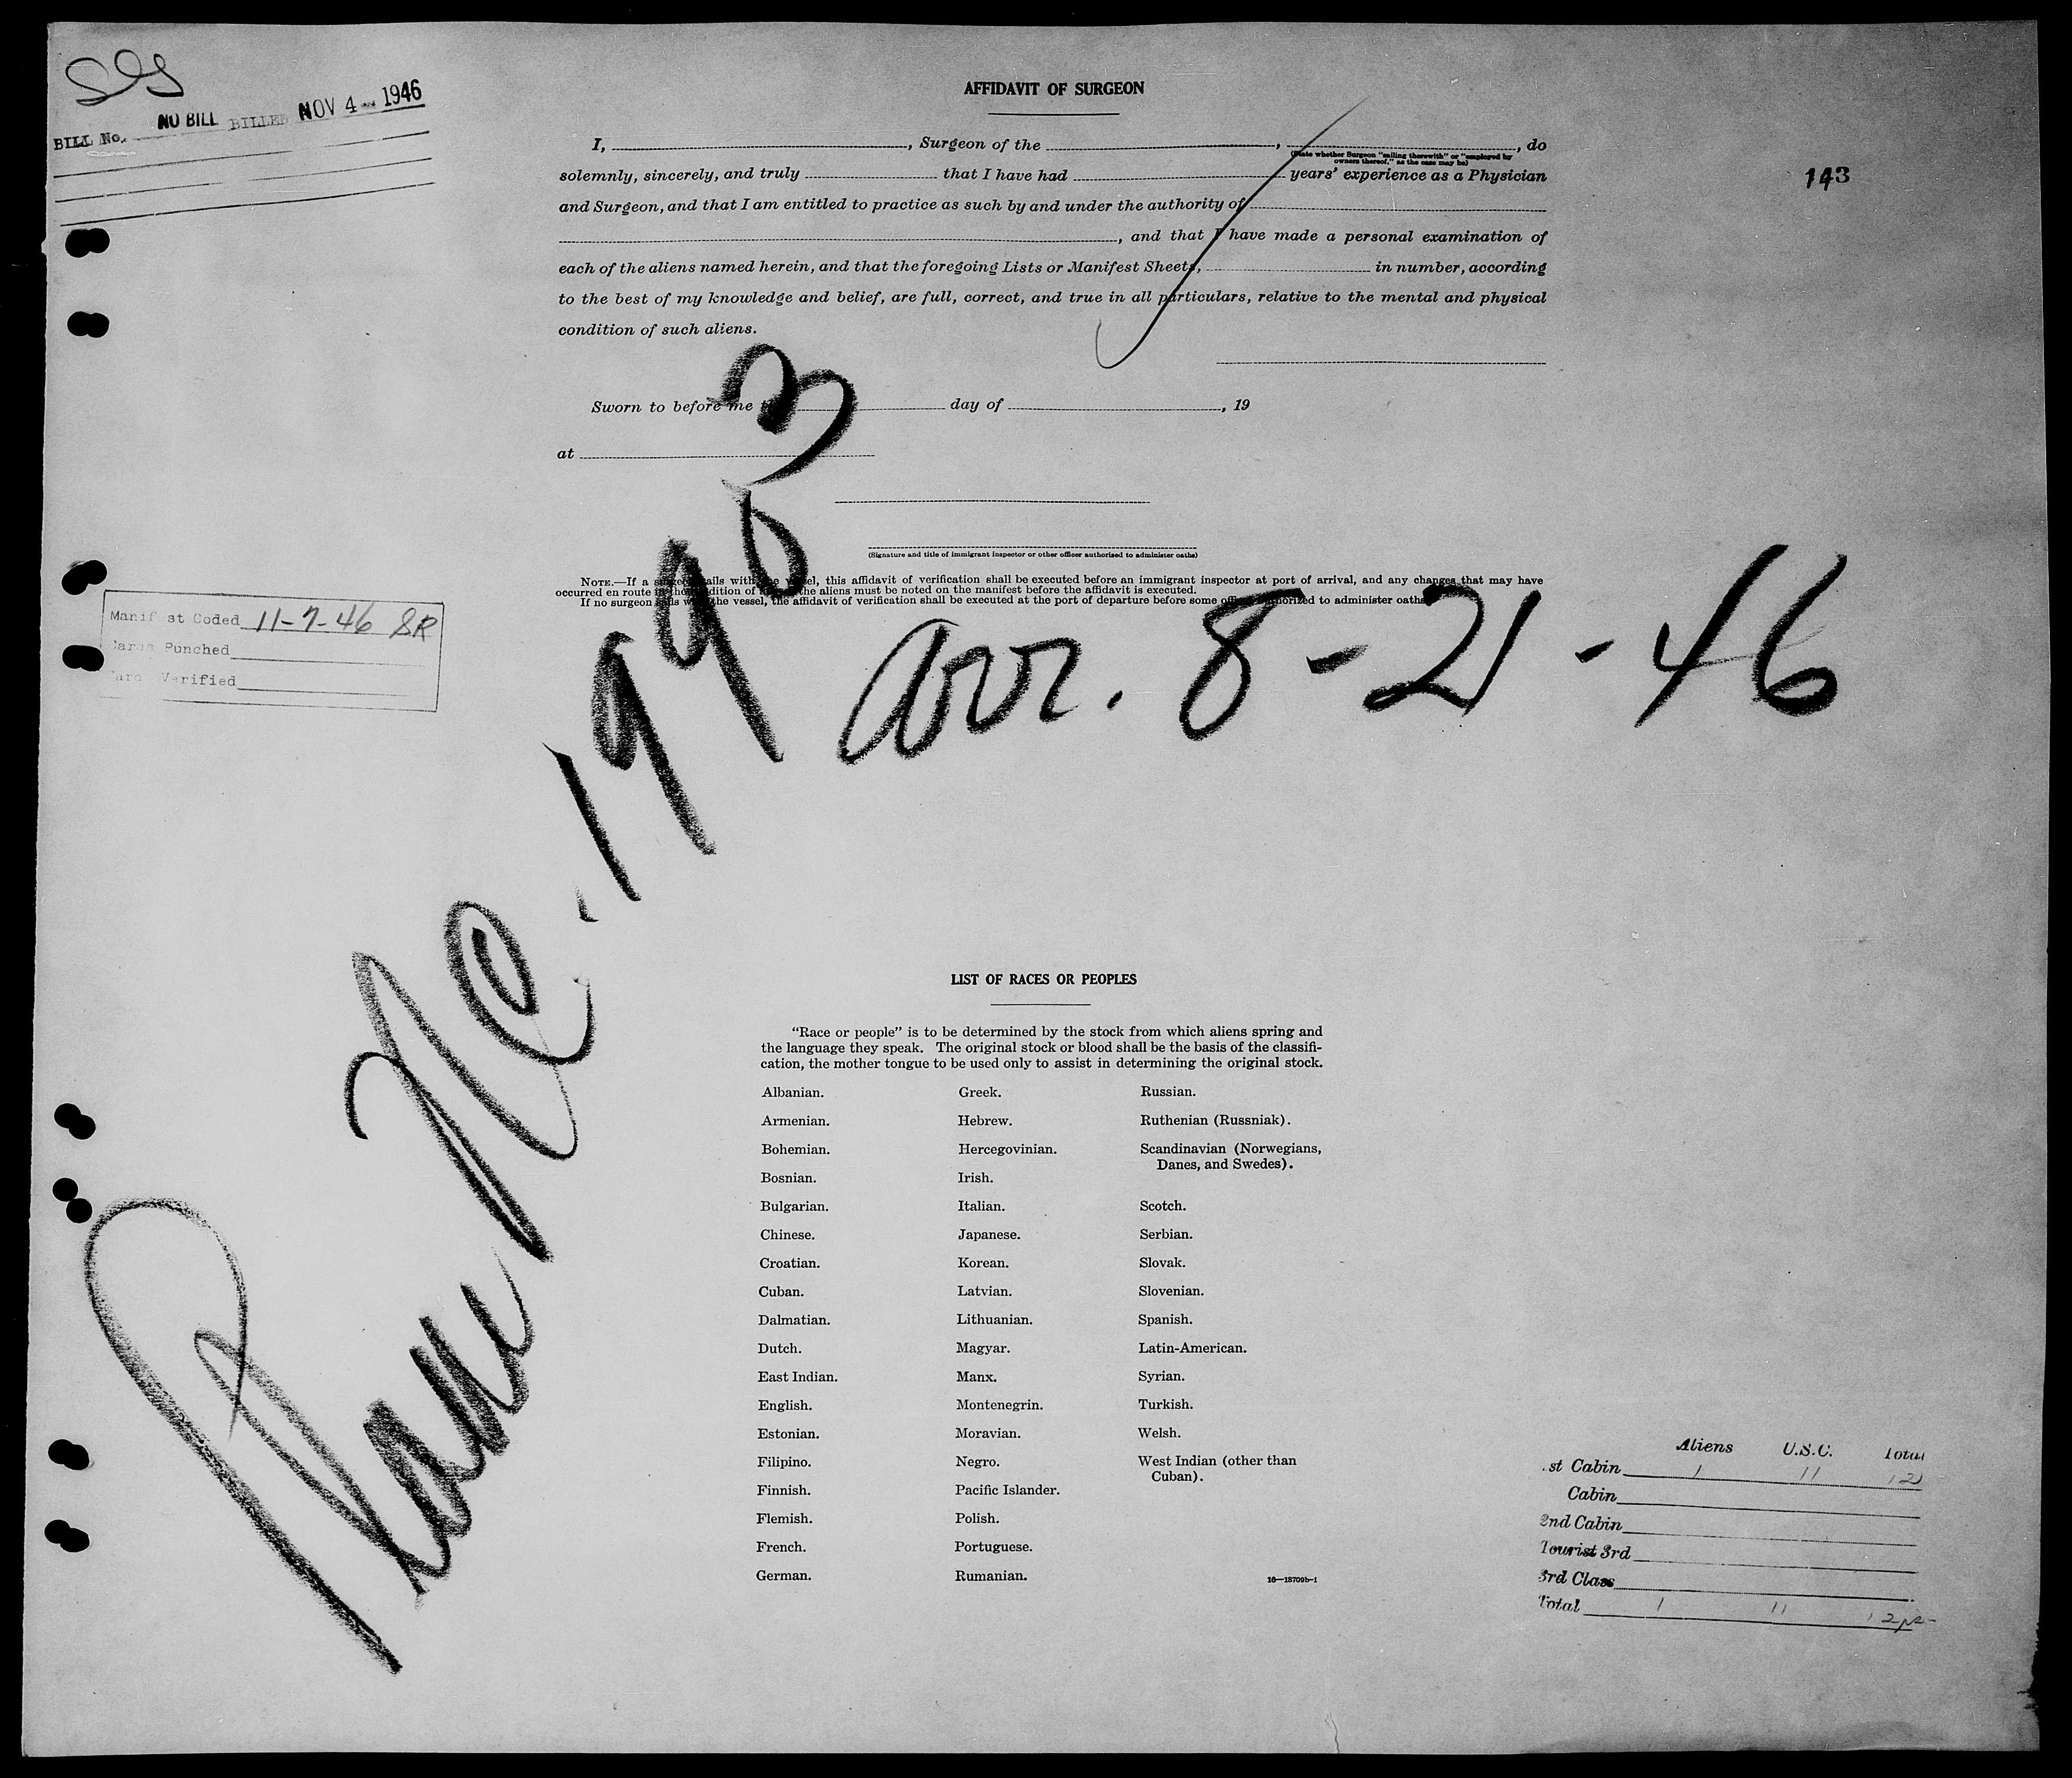 BILL No. NO BILL BILLED NOV 4 - 1946
AFFIDAVIT OF SURGEON
I, , Surgeon of the , , do
(State whether Surgeon "sailing therewith" or "employed by
owners thereof," as the case may be)
solemnly, sincerely, and truly that I have had years' experience as a Physician
143
and Surgeon, and that I am entitled to practice as such by and under the authority of
, and that I have made a personal examination of
each of the aliens named herein, and that the foregoing Lists or Manifest Sheets, in number, according
to the best of my knowledge and belief, are full, correct, and true in all particulars, relative to the mental and physical
condition of such aliens.
Sworn to before me day of , 19
at
(Signature and title of immigrant inspector or other officer authorized to administer oaths)
NOTE.—If a surgeon sails with the vessel, this affidavit of verification shall be executed before an immigrant inspector at port of arrival, and any changes that may have
occurred en route in the condition of the aliens must be noted on the manifest before the affidavit is executed.
If no surgeon sails with the vessel, the affidavit of verification shall be executed at the port of departure before some officer authorized to administer oaths.
Manifest Coded 11-7-46 SR
Cards Punched
Card Verified
arr. 8-21-46
Plane NC.19903
LIST OF RACES OR PEOPLES
"Race or people" is to be determined by the stock from which aliens spring and
the language they speak. The original stock or blood shall be the basis of the classifi-
cation, the mother tongue to be used only to assist in determining the original stock.
Albanian.
Armenian.
Bohemian.
Bosnian.
Bulgarian.
Chinese.
Croatian.
Cuban.
Dalmatian.
Dutch.
East Indian.
English.
Estonian.
Filipino.
Finnish.
Flemish.
French.
German.
Greek.
Hebrew.
Hercegovinian.
Irish.
Italian.
Japanese.
Korean.
Latvian.
Lithuanian.
Magyar.
Manx.
Montenegrin.
Moravian.
Negro.
Pacific Islander.
Polish.
Portuguese.
Rumanian.
Russian.
Ruthenian (Russniak).
Scandinavian (Norwegians,
Danes, and Swedes).
Scotch.
Serbian.
Slovak.
Slovenian.
Spanish.
Latin-American.
Syrian.
Turkish.
Welsh.
West Indian (other than
Cuban).
16—18709b-1
Aliens U.S.C. Total
st Cabin 1 11 12
Cabin
2nd Cabin
Tourist 3rd
3rd Class
Total 1 11 12